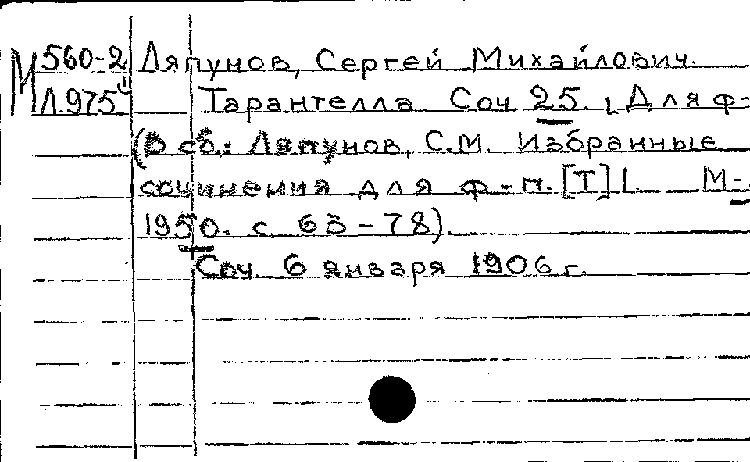 М 560-2 Ляпунов, Сергей Михайлович.
Л.975 Тарантелла Соч 25. Для ф-
(В сб.: Ляпунов, С.М. Избранные
сочинения для ф-п. [Т] I. М-
1950. с 63-78).
Соч. 6 января 1906 г.